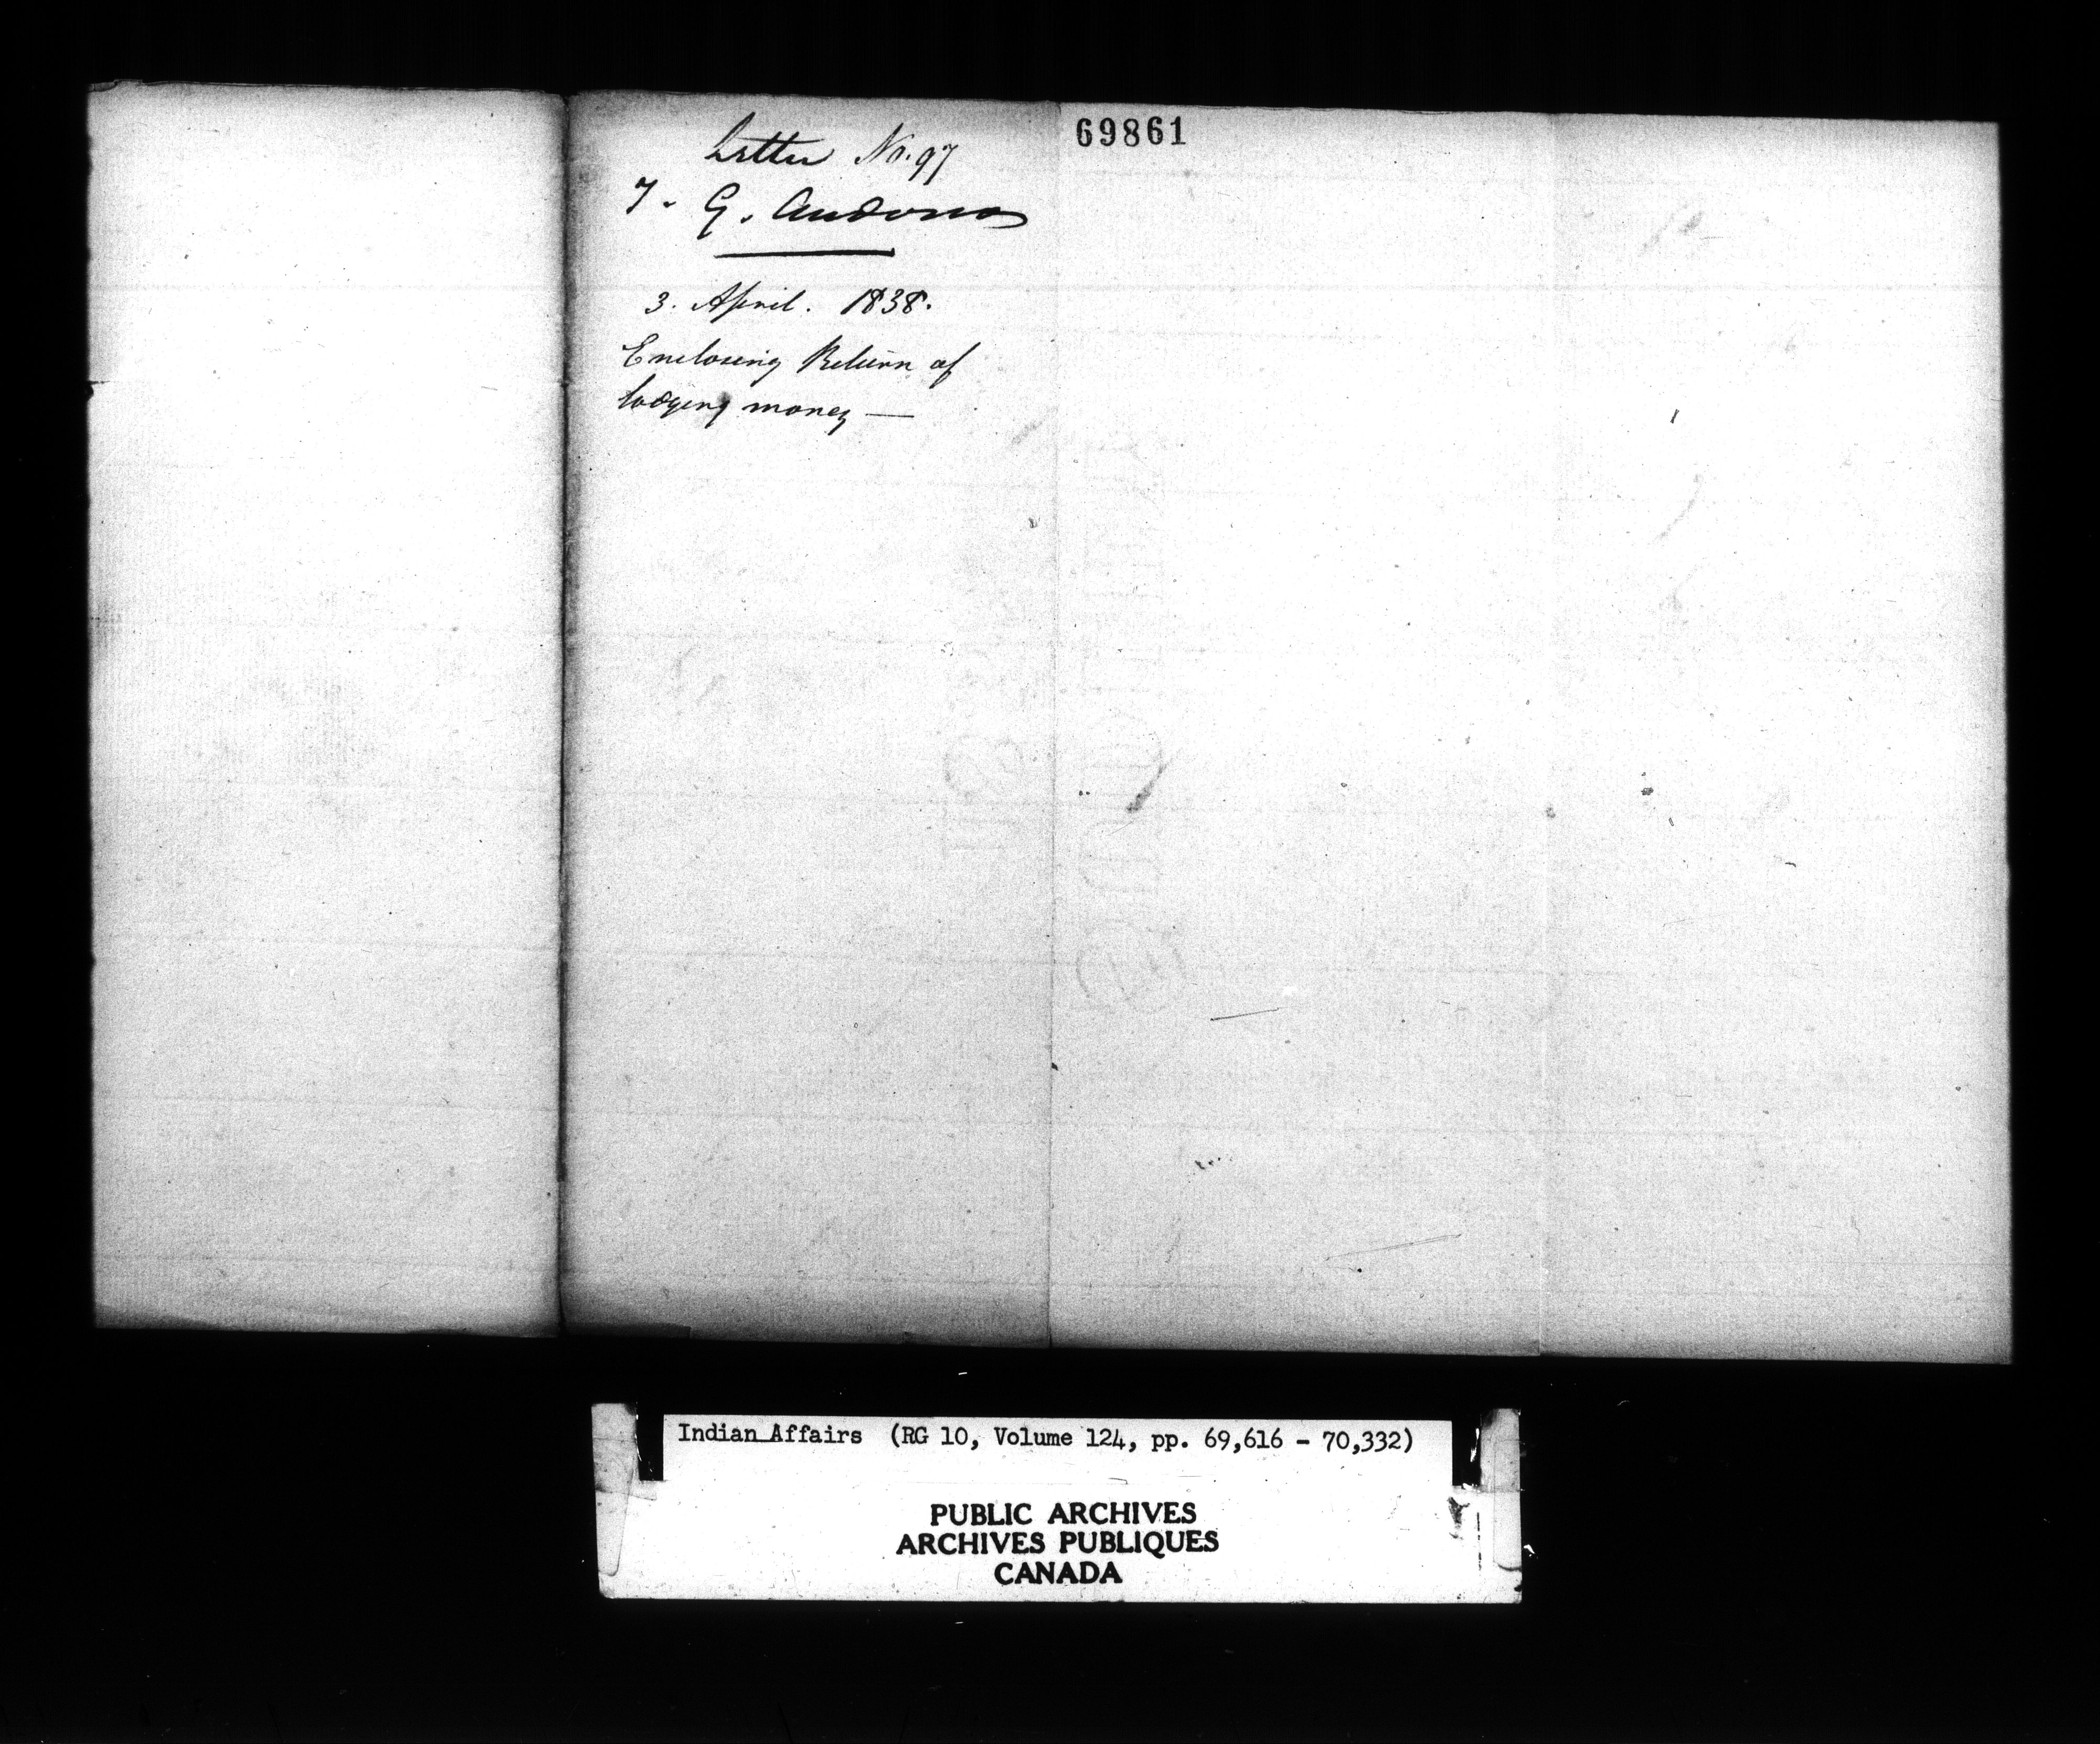 69861
Letter No. 97
T. G. Anderson
3. April. 1838.
Enclosing Return of
lodging money —
Indian Affairs (RG 10, Volume 124, pp. 69,616 - 70,332)
PUBLIC ARCHIVES
ARCHIVES PUBLIQUES
CANADA